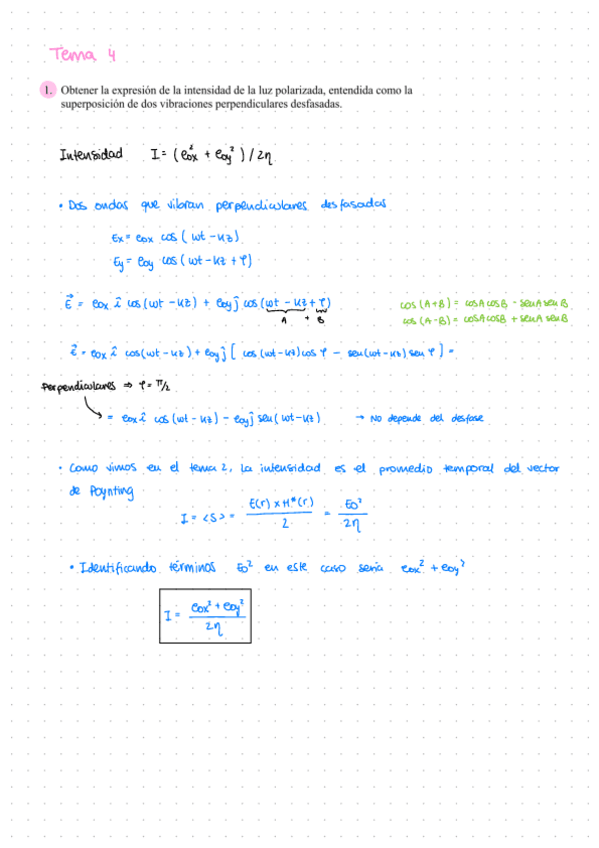 Tema 4
1. Obtener la expresión de la intensidad de la luz polarizada, entendida como la
superposición de dos vibraciones perpendiculares desfasadas.
Intensidad I = (eox² + eoy²) / 2η
• Dos ondas que vibran perpendiculares desfasadas
Ex = eox cos (wt - kz)
Ey = eoy cos (wt - kz + φ)
ε⃗ = eox î cos (wt - kz) + eoy ĵ cos (wt - kz + φ)
A + B
cos (A+B) = cosA cosB - senA senB
cos (A-B) = cosA cosB + senA senB
ε⃗ = eox î cos(wt - kz) + eoy ĵ [ cos (wt - kz) cos φ - sen(wt - kz) sen φ ] =
Perpendiculares ⇒ φ = π/2
= eox î cos (wt - kz) - eoy ĵ sen (wt - kz) → No depende del desfase
• Como vimos en el tema 2, la intensidad es el promedio temporal del vector
de Poynting
I = <S> = E(r) x H*(r) / 2 = Eo² / 2η
• Identificando términos Eo² en este caso sería eox² + eoy²
I = eox² + eoy² / 2η